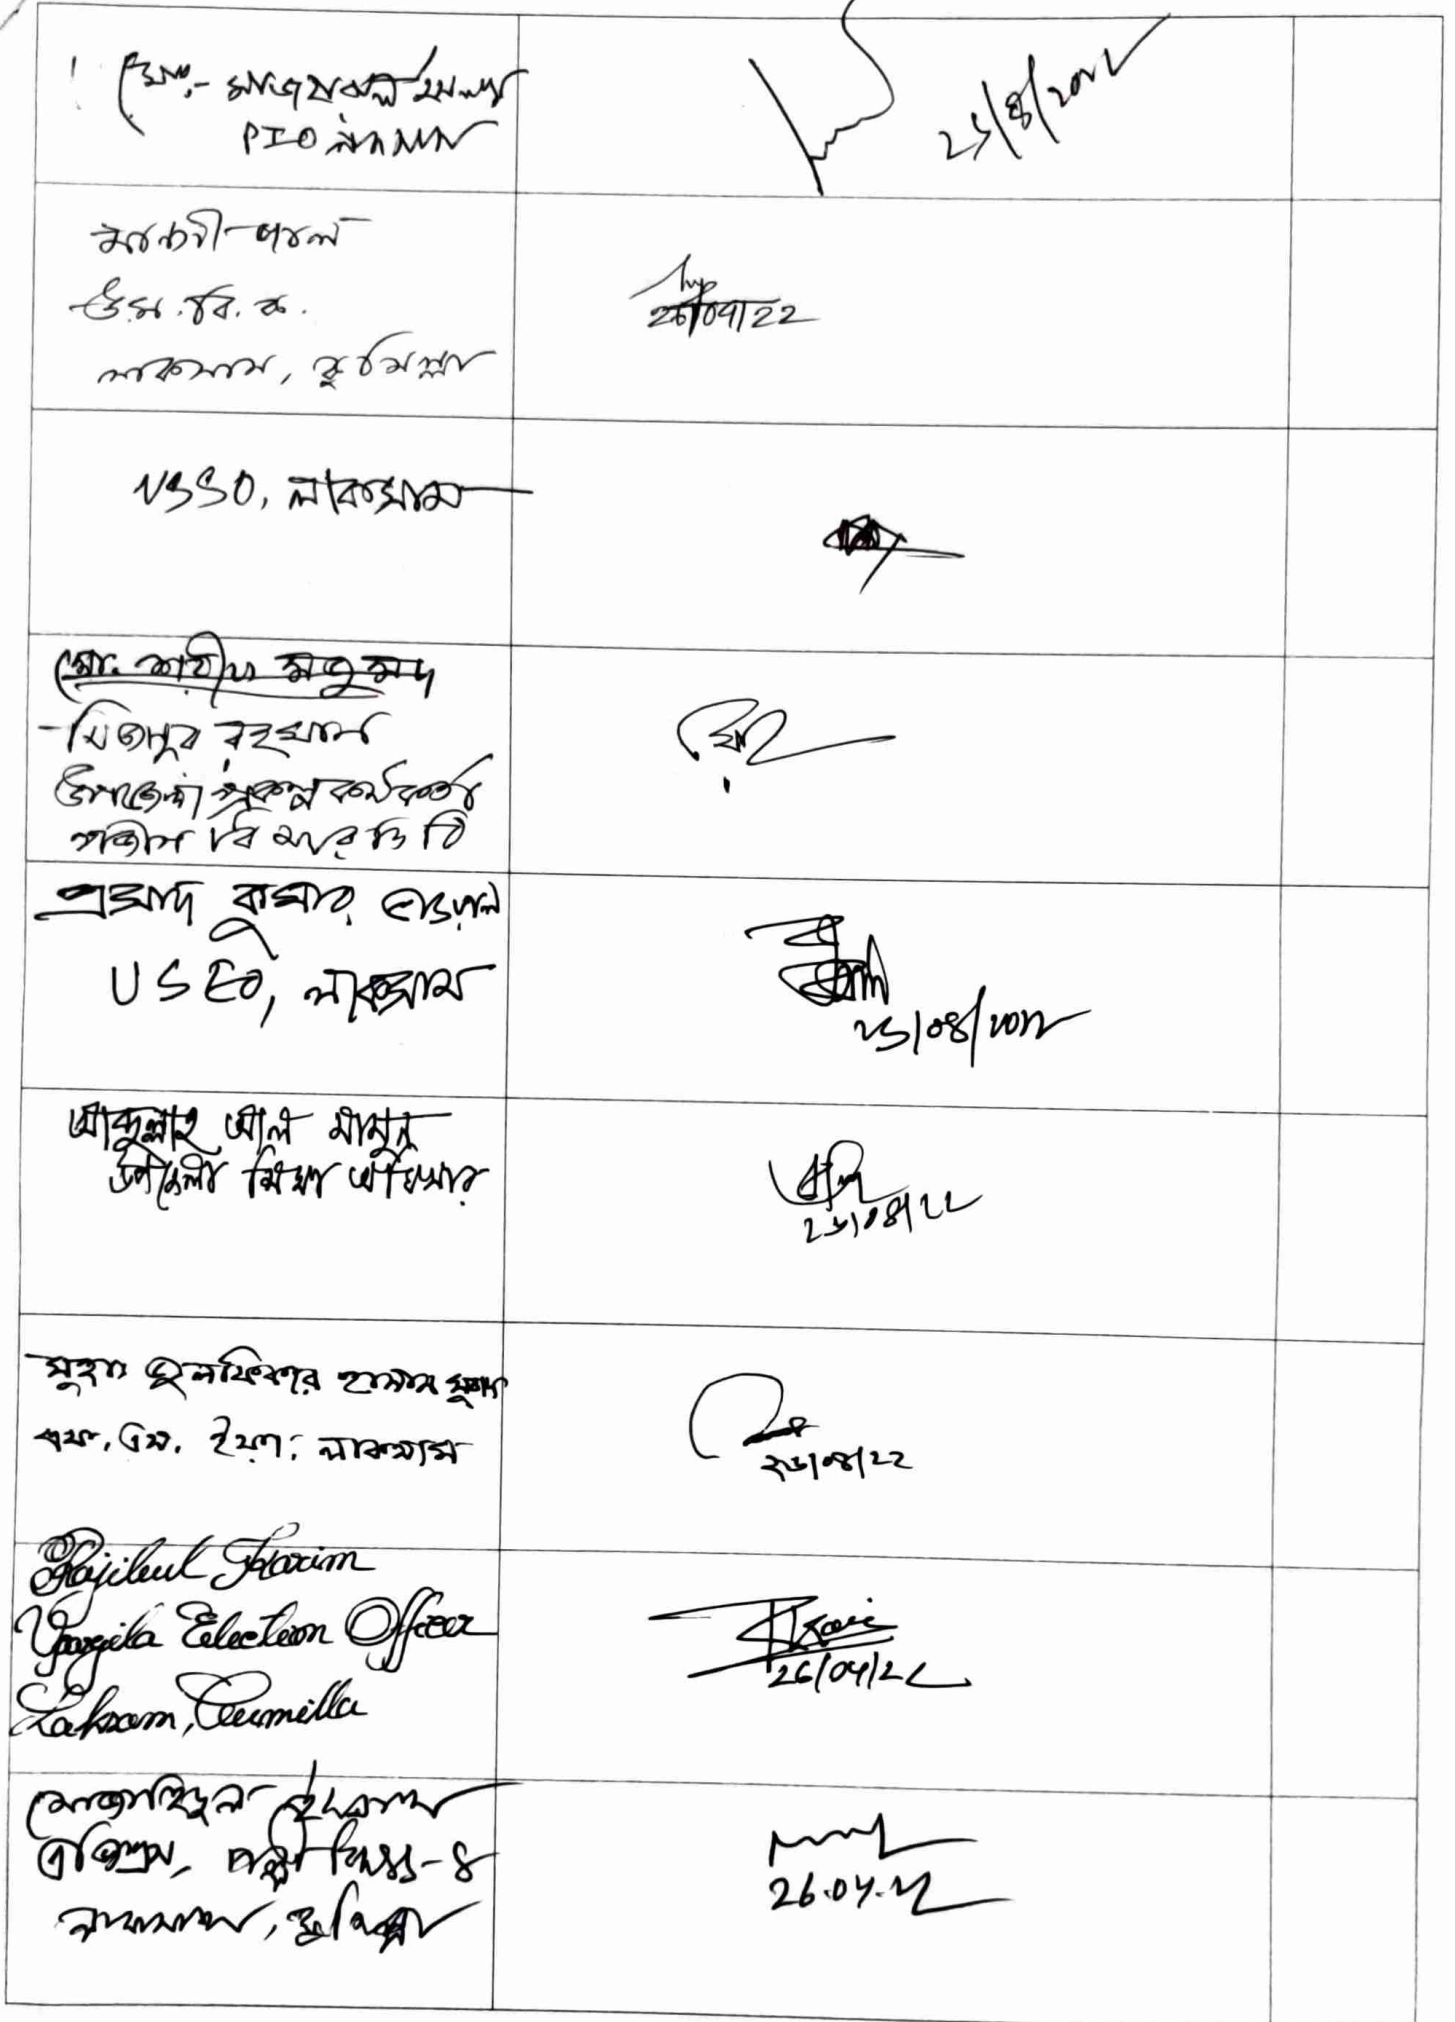 মো:-
PIO লাকসাম
২৬/৪/২০২২
পাল
উ.স.বি.ক.
লাকসাম, কুমিল্লা
26/04/22
USSO, লাকসাম
মো.
মিজানুর রহমান
উপজেলা প্রকল্প কর্মকর্তা
বি আর ডি বি
প্রসাদ কুমার
USEO, লাকসাম
২৬/০৪/২০২২
আব্দুল্লাহ আল মামুন
উপজেলা শিক্ষা অফিসার
২৬/০৪/২২
জুলফিকার হাসান মুরাদ
এফ. এস. ইফা: লাকসাম
২৬/০৪/২২
Rajibul Karim
Upazila Election Officer
Laksam, Cumilla
26/04/22
মোজাহিদুল ইসলাম
এজিএম, পল্লী বিদ্যুৎ-৪
লাকসাম, কুমিল্লা
26.04.22